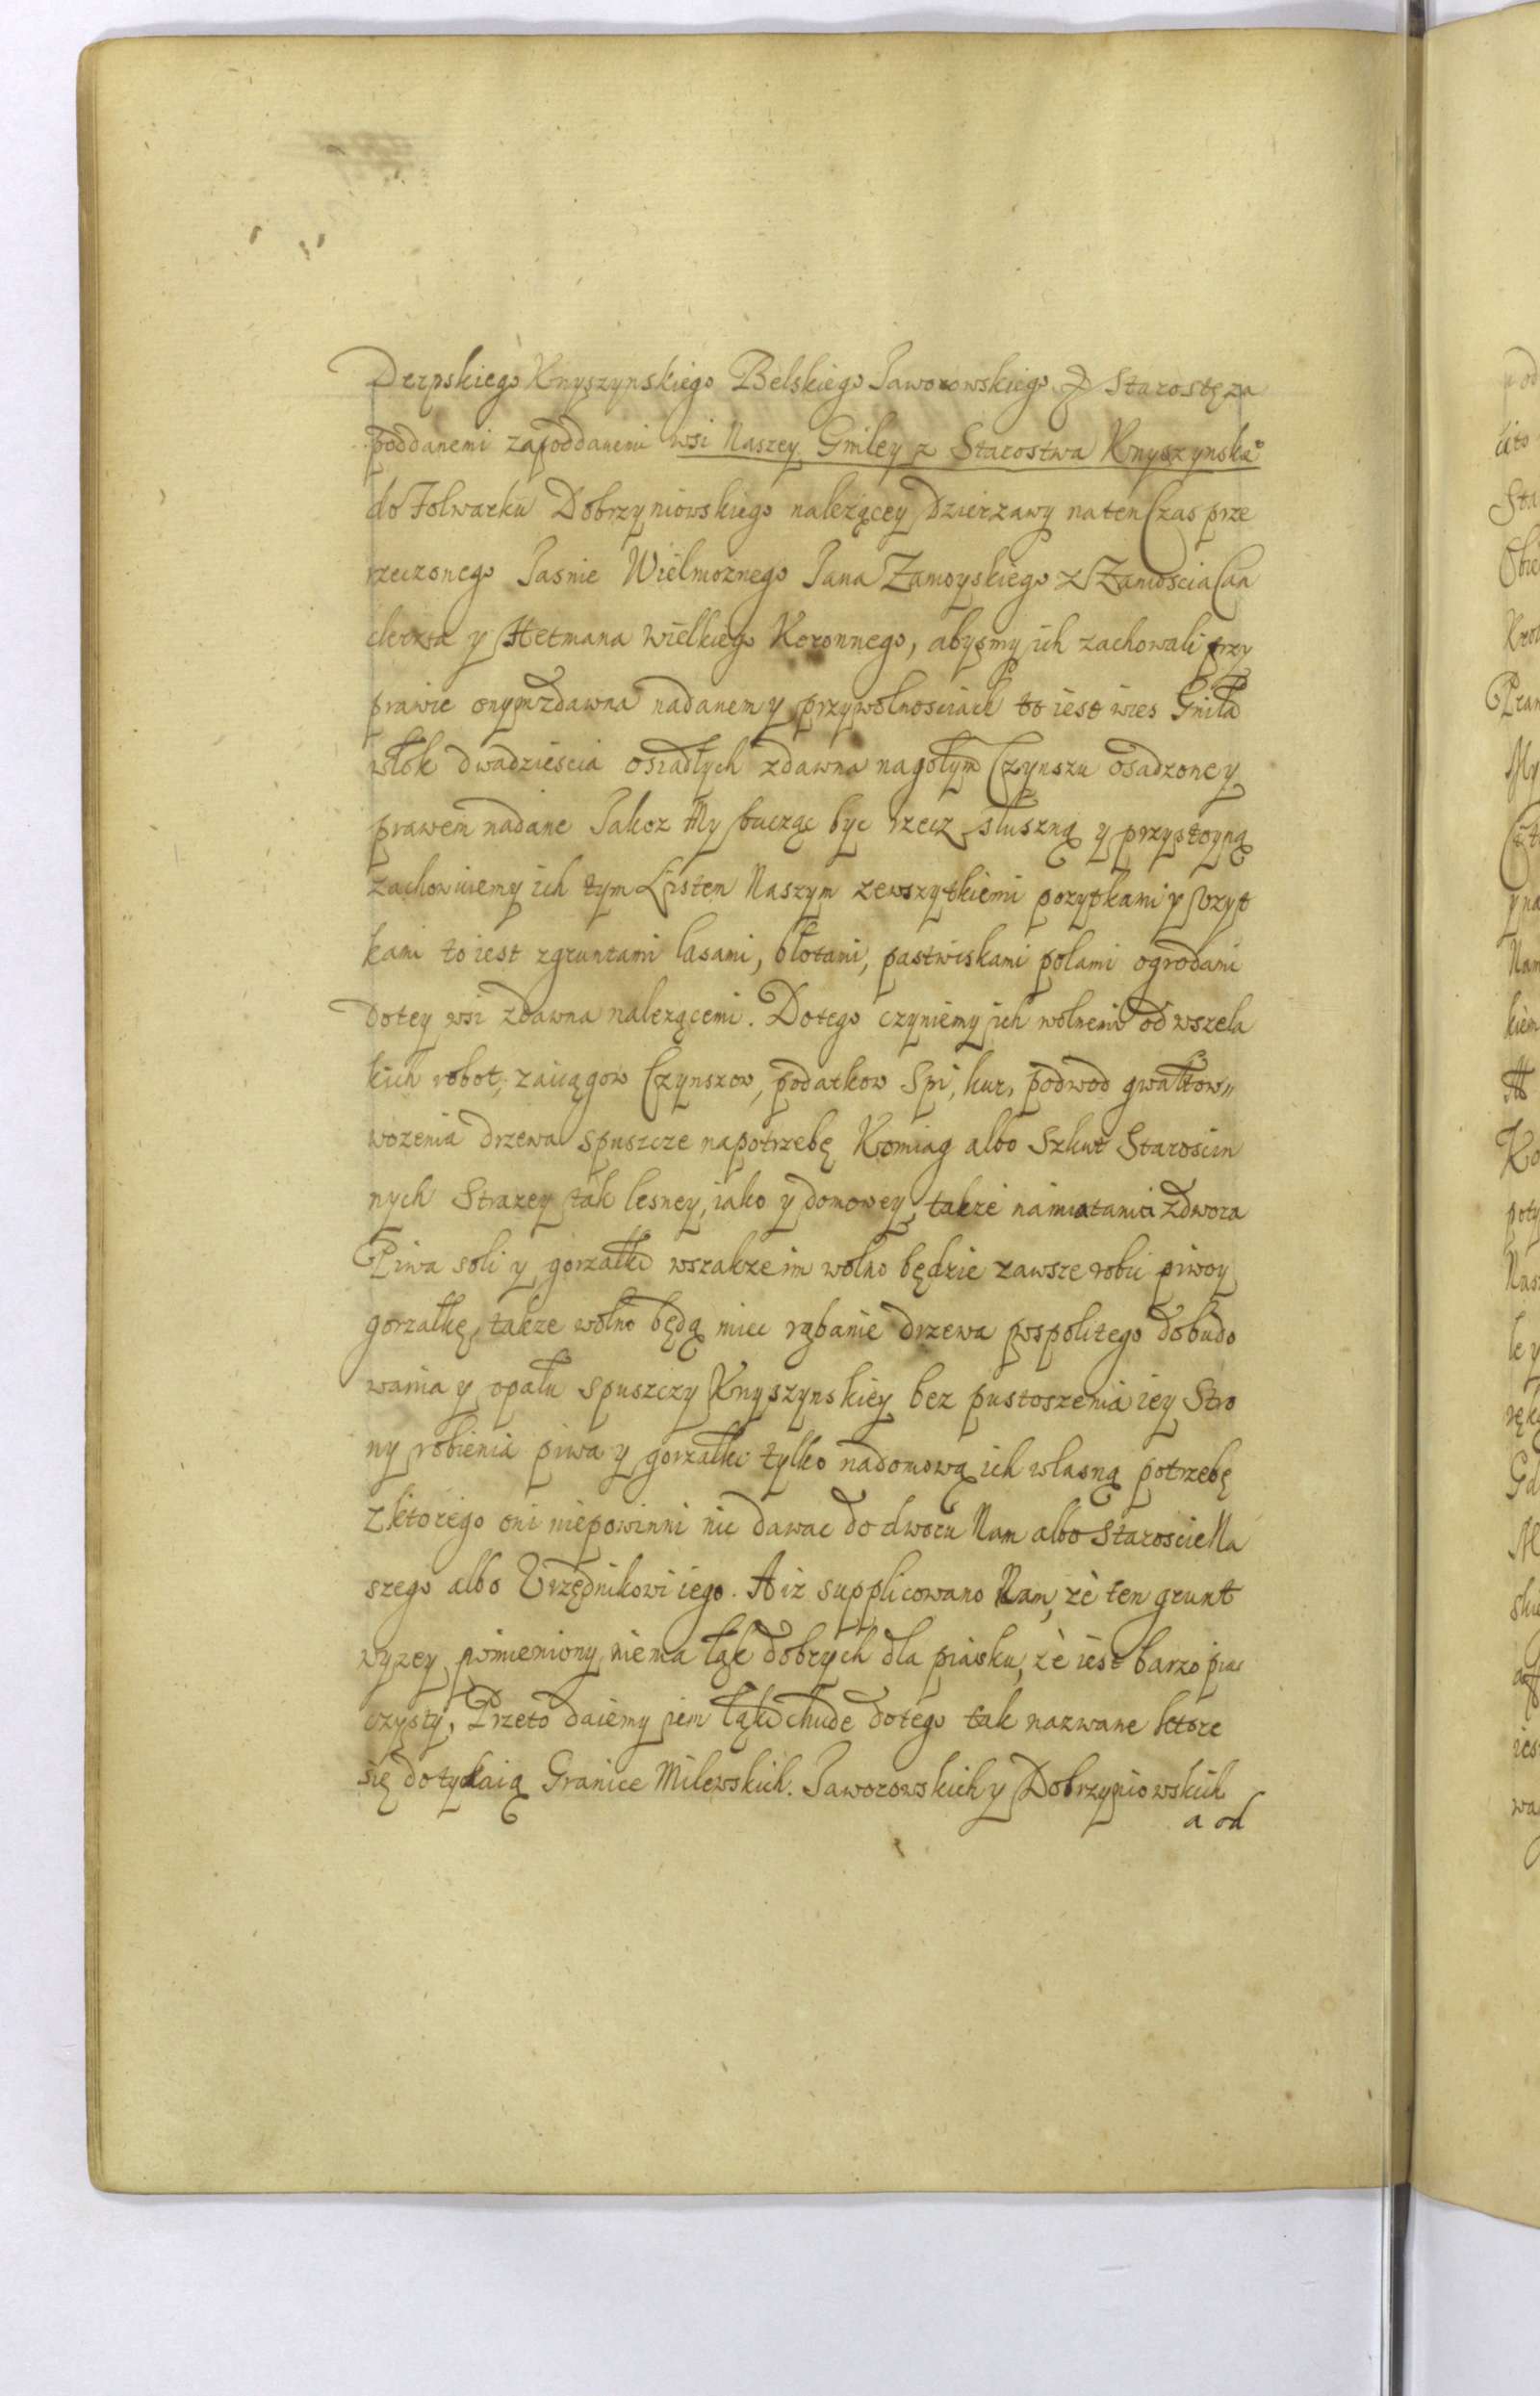 Derpskiego Knyszynskiego Belskiego Jaworowskiego & Starostę za
poddanemi zapoddanemi wsi Naszey Gniley z Starostwa Knyszynskᵒ
do Folwarku Dobrzyniowskiego należącey Dzierzawy naten Czas prze
rzeczonego Jasnie Wielmożnego Jana Zamoyskiego z Zamoscia Can
clerza y Hetmana wielkiego Koronnego, abysmy ich zachowali przy
prawie onym zdawna nadanem y przywolnosciach to iest wies Gniła
włok dwadziescia osiadłych zdawna nagołym Czynszu osadzoney
prawem nadane Jakoz My bacząc byc rzecz słuszną y przystoyną
zachowuiemy ich tym Listem Naszym zewszytkiemi pozytkami y Vzyt
kami to iest zgruntami lasami, błotami, pastwiskami polami ogrodami
dotey wsi zdawna nalezącemi. Dotego czyniemy ich wolnemi od wszela
kich robot, zaciągow Czynszow, podatkow Spi, kur, podwod gwałtow,,
wozenia drzewa spuszcze napotrzebę Komiag albo Szkut Starościn
nych Strazey tak lesney, iako y domowey, takze namiatania zdwora
Piwa soli y gorzałki wszakze im wolno będzie zawsze robic piwo y
gorzałkę, takze wolno będą miec rąbanie drzewa pospolitego dobudo
wania y opału spuszczy Knyszynskiey bez pustoszenia iey Stro
ny robienia piwa y gorzałki tylko nadomową ich własną potrzebę
z ktorego oni niepowinni nic dawac do dworu Nam albo Staroscie Na
szego albo Vrzędnikowi iego. A iz supplicowano Nam, ze ten grunt
wyzey pomieniony niema łąk dobrych dla piasku, ze iest barzo pias
czysty, Przeto daiemy iem łąki chude dotego tak nazwane ktore
się dotykaią Granice Milewskich. Jaworowskich y Dobrzyniowskich
a od